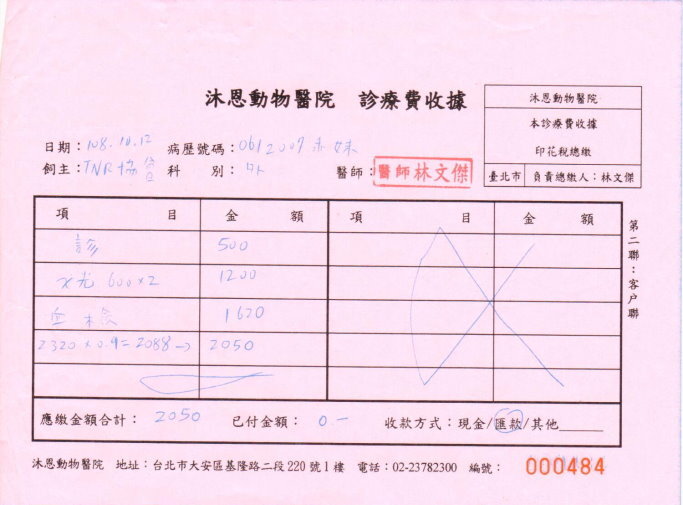 沐恩動物醫院 診療費收據
沐恩動物醫院
本診療費收據
印花稅總繳
臺北市 負責總繳人：林文傑
日期：108.10.12 病歷號碼：0612007 赤妹
飼主：TNR協會 科 別：外 醫師：醫師林文傑
項 目 金 額 項 目 金 額
診 500
X光 600x2 1200
血檢 1620
2320x0.9=2088→ 2050
應繳金額合計：2050 已付金額：0.- 收款方式：現金/匯款/其他______
第二聯：客戶聯
沐恩動物醫院 地址：台北市大安區基隆路二段220號1樓 電話：02-23782300 編號：000484